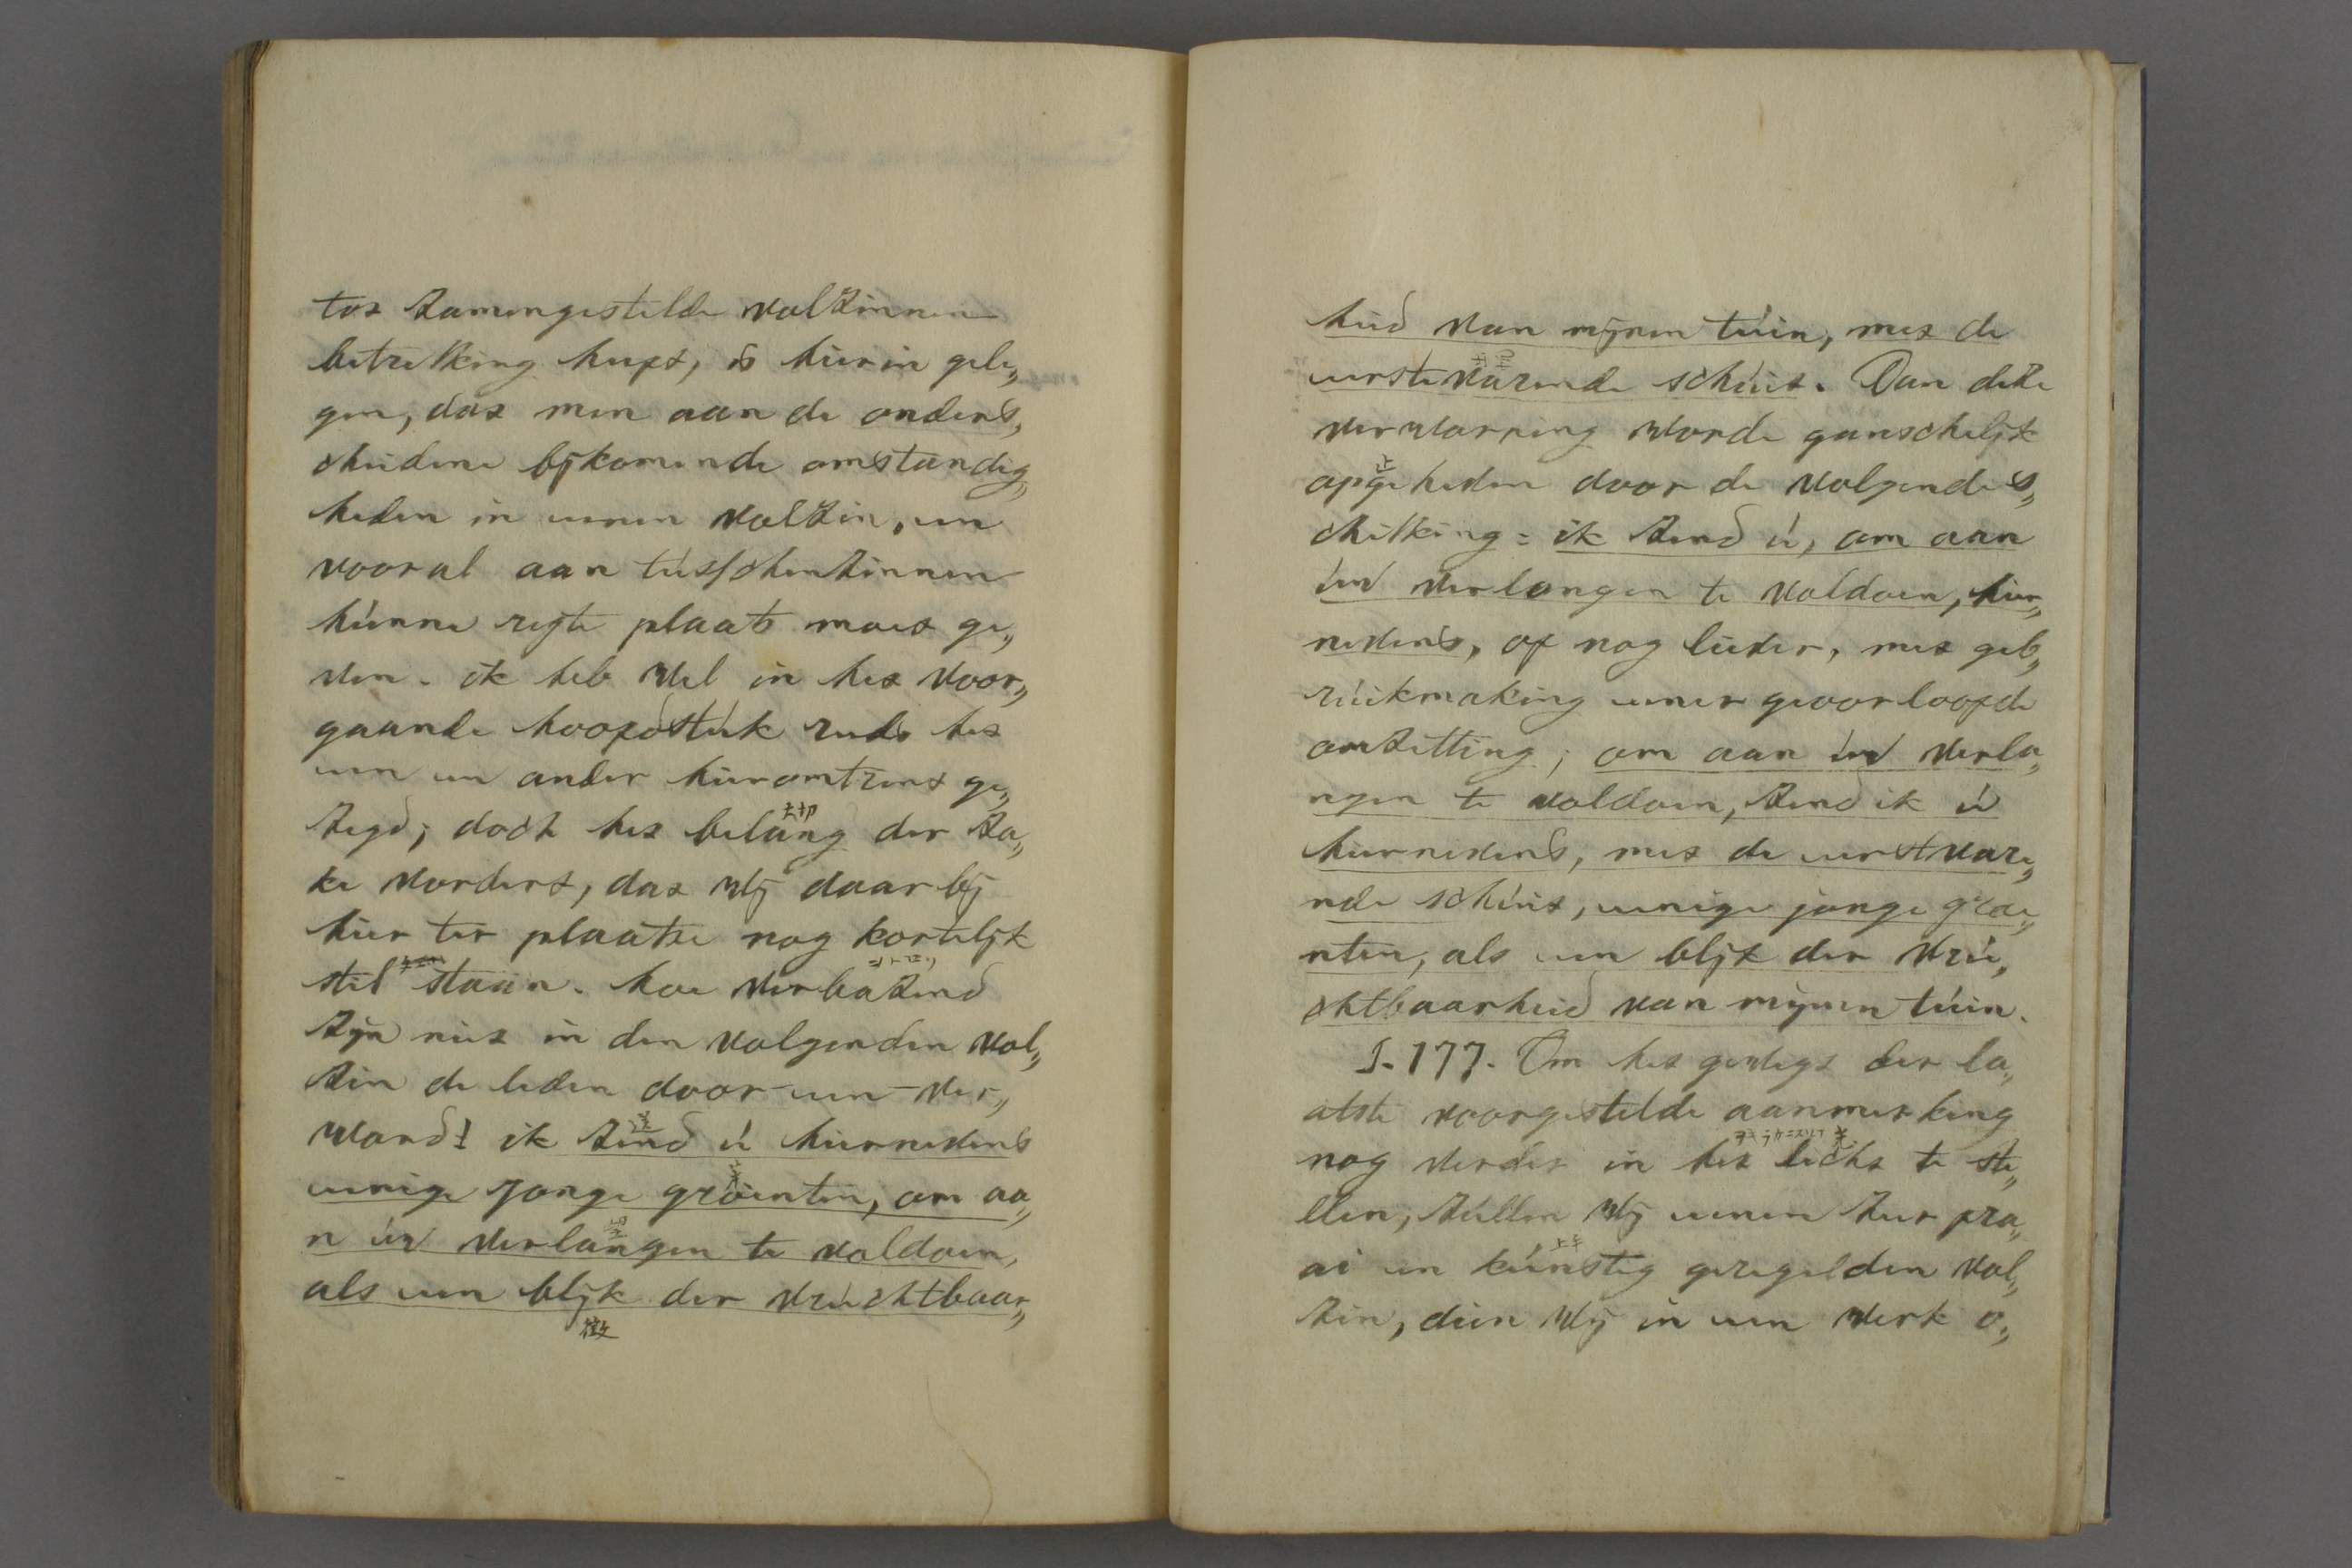 tot zamengestelde volzinnen
betrekking heeft, is hierin gele„
gen, dat men aan de onders„
cheidene bijkomende omstandig„
heden in eenen volzin, en
vooral aan tusschenzinnen
hunne regte plaats moet ge„
ven. ik heb wel in het voor„
gaande hoofdstuk reeds het
een en ander hieromtrent ge„
zegd; doch het belang der za„
ke vordert, dat wij daar bij
hier ter plaatse nog kortelijk
stil staan. hoe verbazend
zijn niet in den volgenden vol„
zin de leden door-een-ver„
ward! ik zend u hiernevens
eenige jonge groenten, om aa„
n uw verlangen te voldoen,
als een blijk der vruchtbaar„
徵
heid van mijnen tuin, met de
eerstvarende schuit. Dan deze
verwarring worde ganschelijk
opgeheven door de volgende s„
chikking: ik zend u, om aan
uw verlangen te voldoen, hier„
nevens, of nog liever, met geb„
ruikmaking eener geoorloofde
omzetting; om aan uw verla„
ngen te voldoen, zend ik u
hiernevens, met de eerstvare„
nde schuit, eenige jonge groe„
nten, als een blijk der vru„
chtbaarheid van mijnen tuin.
§. 177. Om het gewigt der la„
atste voorgestelde aanmerking
nog verder in het licht te ste„
llen, zullen wij eenen zeer fra„
ai en kunstig geregelden vol„
zin, dien wij in een werk o„